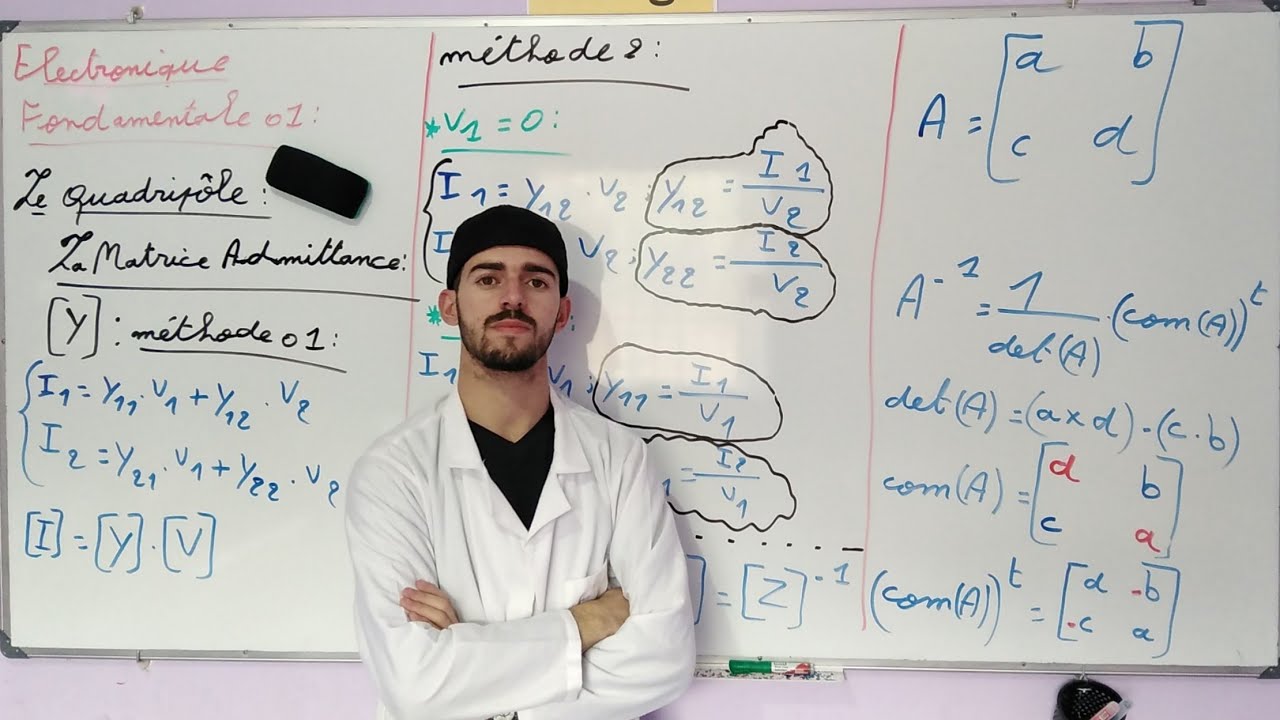 Electronique
Fondamentale 01:
Le Quadripôle:
La Matrice Admittance:
[Y]: méthode 01:
I1 = Y11 . V1 + Y12 . V2
I2 = Y21 . V1 + Y22 . V2
[I] = [Y] . [V]
méthode 2:
* V1 = 0:
I1 = Y12 . V2 ; Y12 = I1 / V2
I V2 ; Y22 = I2 / V2
* :
I1 V1 ; Y11 = I1 / V1
1 = I2 / V1
] = [Z]-1
A = [a b
c d]
A-1 = 1 / det(A) . (com(A))t
det(A) = (a x d) - (c . b)
com(A) = [d b
c a]
(com(A))t = [d -b
-c a]